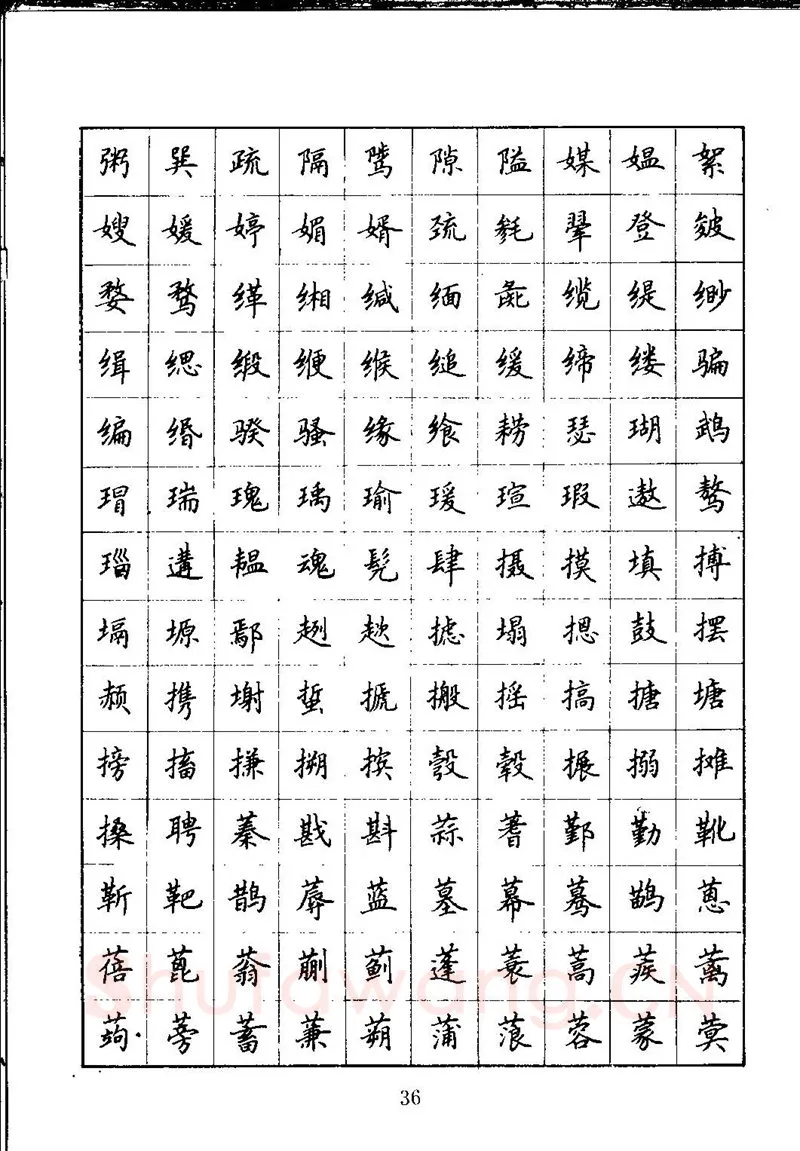 粥巽疏隔骘隙隘媒媪絮
嫂媛婷媚婿巯毵翚登皴
婺骛缂缃缄缅彘缆缇缈
缉缌缎缏缑缒缓缔缕骗
编缗骙骚缘飨耢瑟瑚鹉
瑁瑞瑰瑀瑜瑗瑄瑕遨骜
瑙遘韫魂髡肆摄摸填搏
塥塬鄢趔趑摅塌摁鼓摆
赪携塮蜇搋搬摇搞搪塘
搒搐搛搠摈彀毂搌搦摊
搡聘蓁戡斟蒜蓍鄞勤靴
靳靶鹊蓐蓝墓幕蓦鹋蒽
蓓蓖蓊蒯蓟蓬蓑蒿蒺蓠
Shufawang.CN
蒟蒡蓄蒹蒴蒲蒗蓉蒙蓂
36